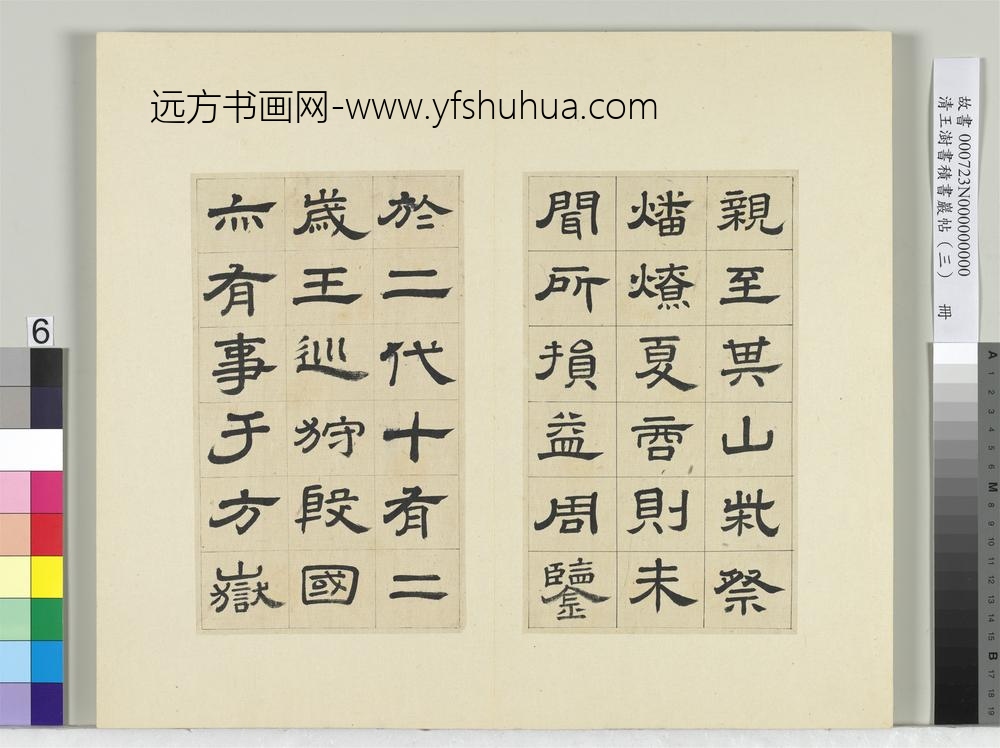 远方书画网-www.yfshuhua.com
親至其山柴祭
燔燎夏商則未
聞所損益周鑒
於二代十有二
歲王巡狩殷國
亦有事于方嶽
故書 000723N000000000
清王澍書積書巖帖（三） 冊
6
A 1 2 3 4 5 6 M 8 9 10 11 12 13 14 15 B 17 18 19